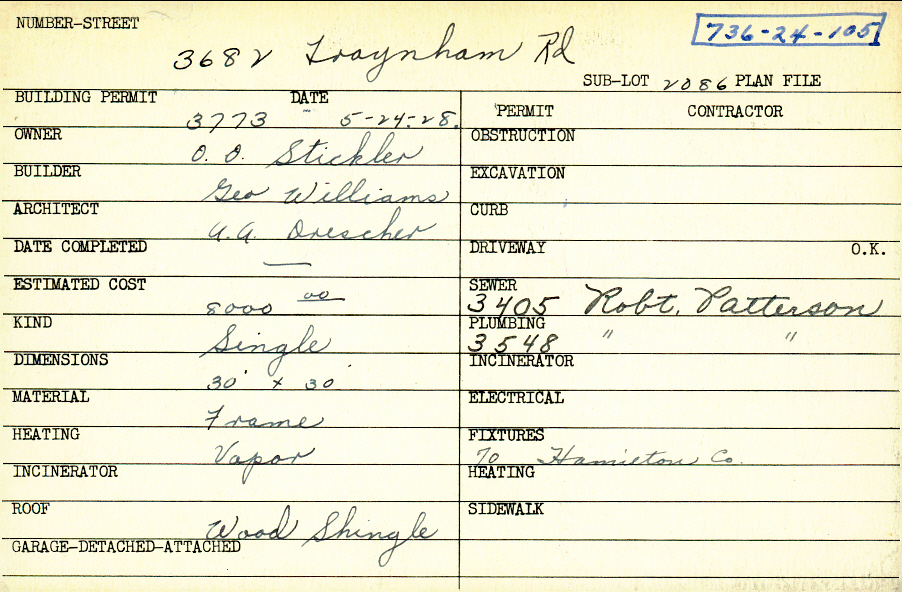 NUMBER-STREET
736-24-105
3682 Traynham Rd
SUB-LOT 2086 PLAN FILE
BUILDING PERMIT DATE
3773 5-24-28.
OWNER
O. O. Stickler
BUILDER
Geo Williams
ARCHITECT
A.A. Drescher
DATE COMPLETED
—
ESTIMATED COST
8000 00
KIND
Single
DIMENSIONS
30' x 30'
MATERIAL
Frame
HEATING
Vapor
INCINERATOR
ROOF
Wood Shingle
GARAGE-DETACHED-ATTACHED
PERMIT CONTRACTOR
OBSTRUCTION
EXCAVATION
CURB
DRIVEWAY O.K.
SEWER
3405 Robt. Patterson
PLUMBING
3548 " "
INCINERATOR
ELECTRICAL
FIXTURES
70 Hamilton Co.
HEATING
SIDEWALK